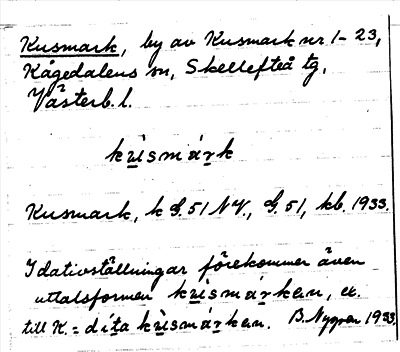 Kusmark, by av Kusmark nr 1-23,
Kågedalens sn, Skellefteå tg,
Västerb. l.
kùsmárk
Kusmark, k G. 51 NV., G. 51, kb. 1933.
I dativställningar förekommer även
uttalsformen kùsmárkan, ex.
till K. = díta kùsmárkan. B. Nygren 1933.